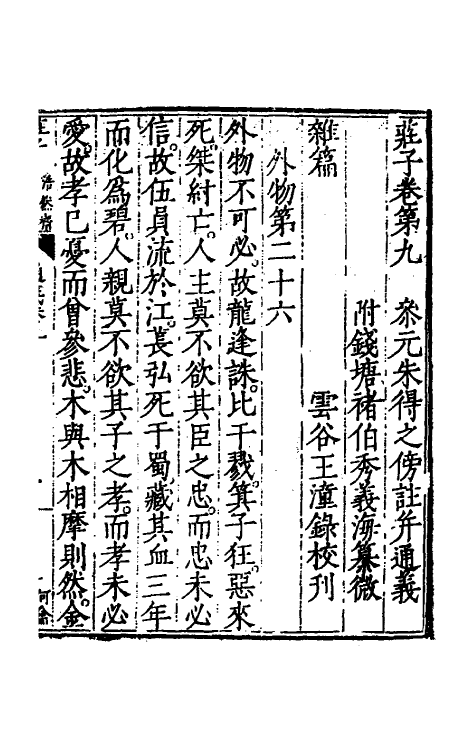 莊子卷第九　參元朱得之傍註并通義
附錢塘褚伯秀義海纂微
雜篇　雲谷王潼錄校刊
外物第二十六
外物不可必。故龍逢誅。比干戮。箕子狂。惡來
死。桀紂亡。人主莫不欲其臣之忠。而忠未必
信。故伍員流於江。萇弘死于蜀。藏其血三年
而化為碧。人親莫不欲其子之孝。而孝未必
愛。故孝已憂而曾參悲。木與木相摩則然。金
浩然齋